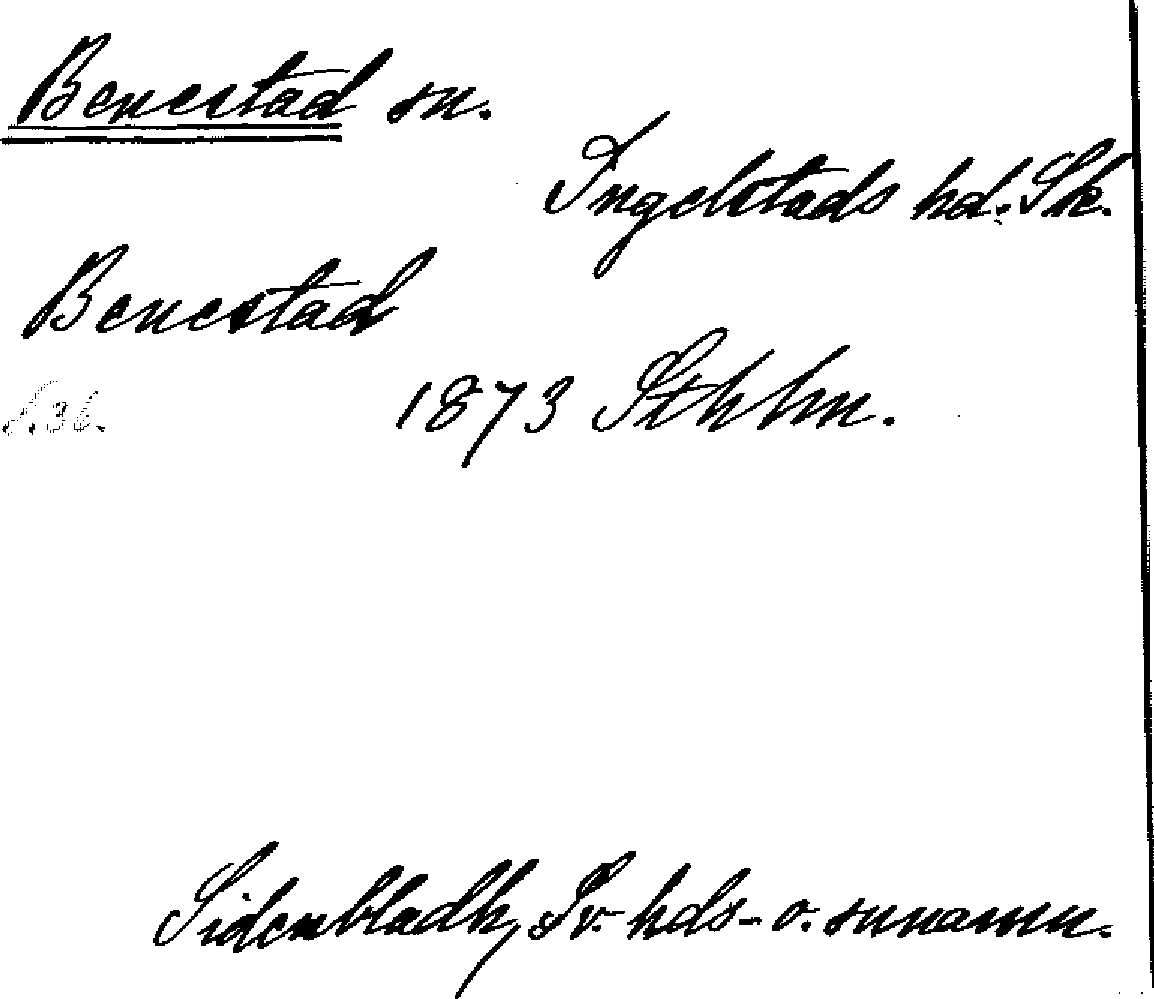 Benestad sn.
Ingelstads hd. Sk.
Benestad
1873 Sthlm.
s. 36.
Sidenbladh, Sv. hds- o. snnamn.